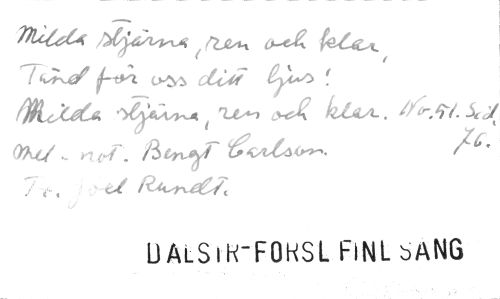 Milda stjärna, ren och klar,
Tänd för oss ditt ljus!
Milda stjärna, ren och klar. No. 51. Sid. 76.
mel. not. Bengt Carlson.
Te. Joel Rundt.
DALSTR-FORSL FINL SÅNG